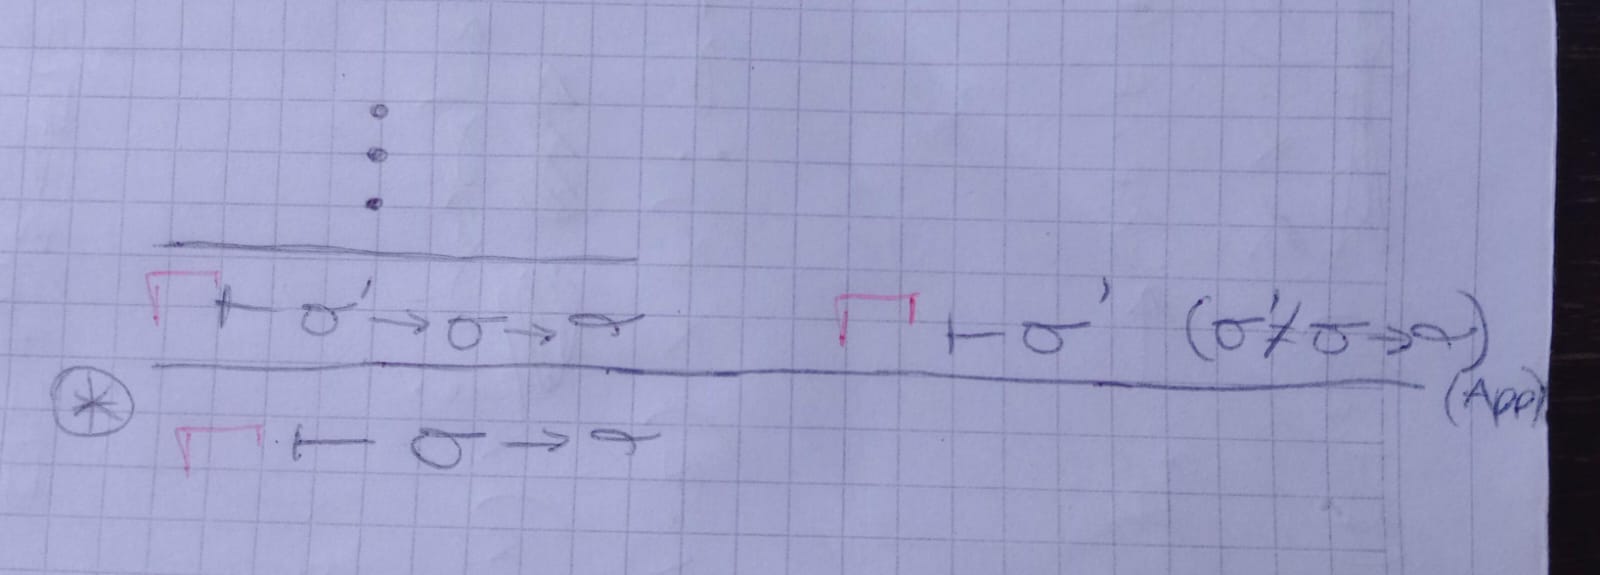 Γ ⊢ σ' → σ → τ Γ ⊢ σ' (σ' ≠ σ → τ)
(App)
⊛ Γ ⊢ σ → τ